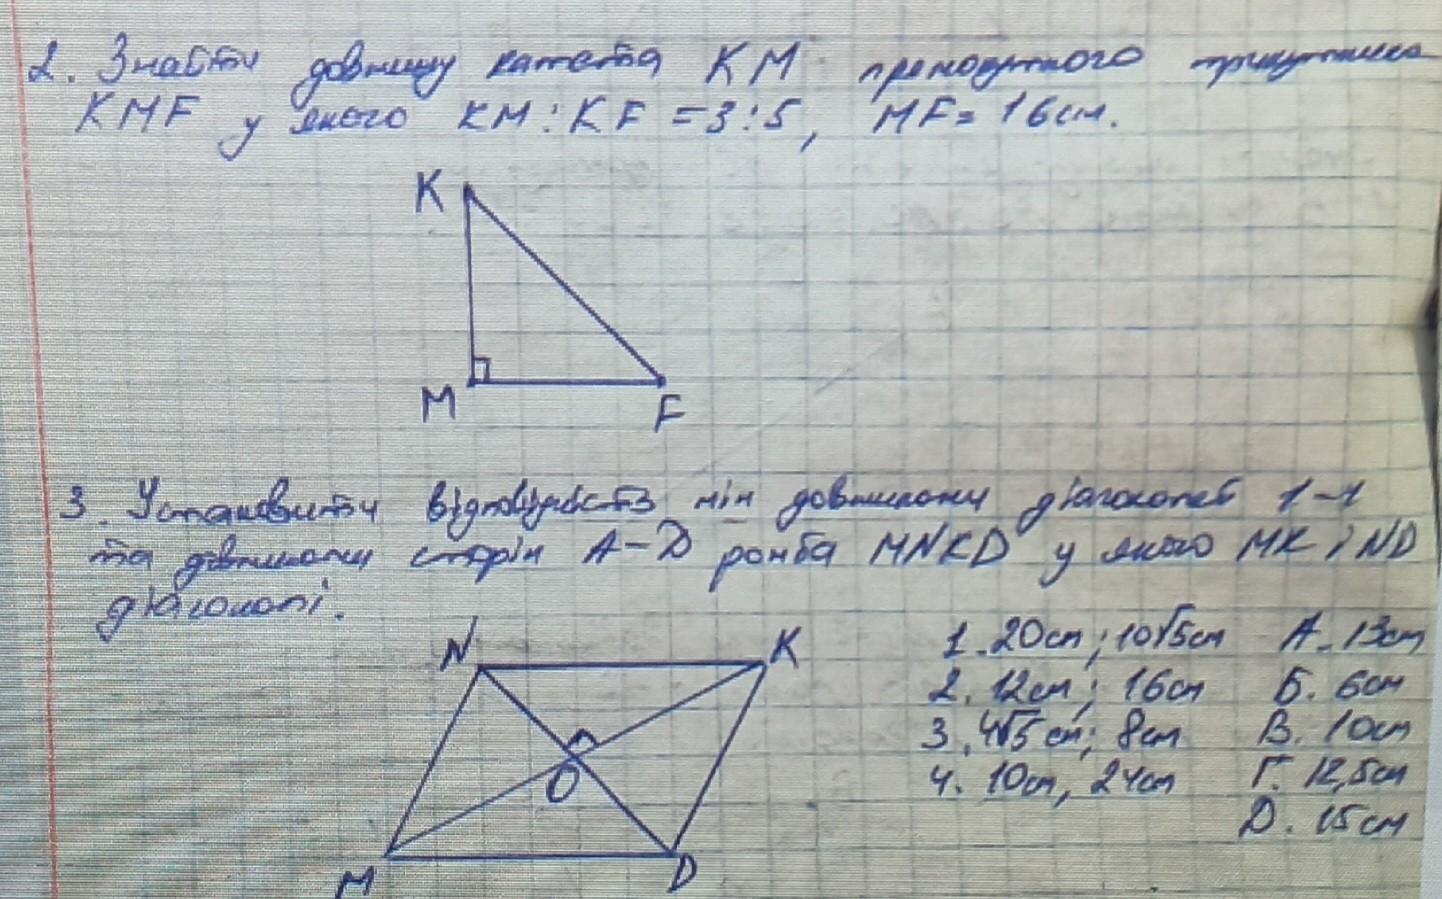 2. Знайти довжину катета KM прямокутного трикутника
KMF у якого KM : KF = 3 : 5, MF = 16 см.
K
M
F
3. Установити відповідність між довжинами діагоналей 1-4
та довжинами сторін А-D ромба MNKD у якого MK і ND
діагоналі.
N
K
O
M
D
1. 20 см ; 10√5 см А. 13 см
2. 12 см ; 16 см Б. 6 см
3. 4√5 см ; 8 см В. 10 см
4. 10 см, 24 см Г. 12,5 см
D. 15 см